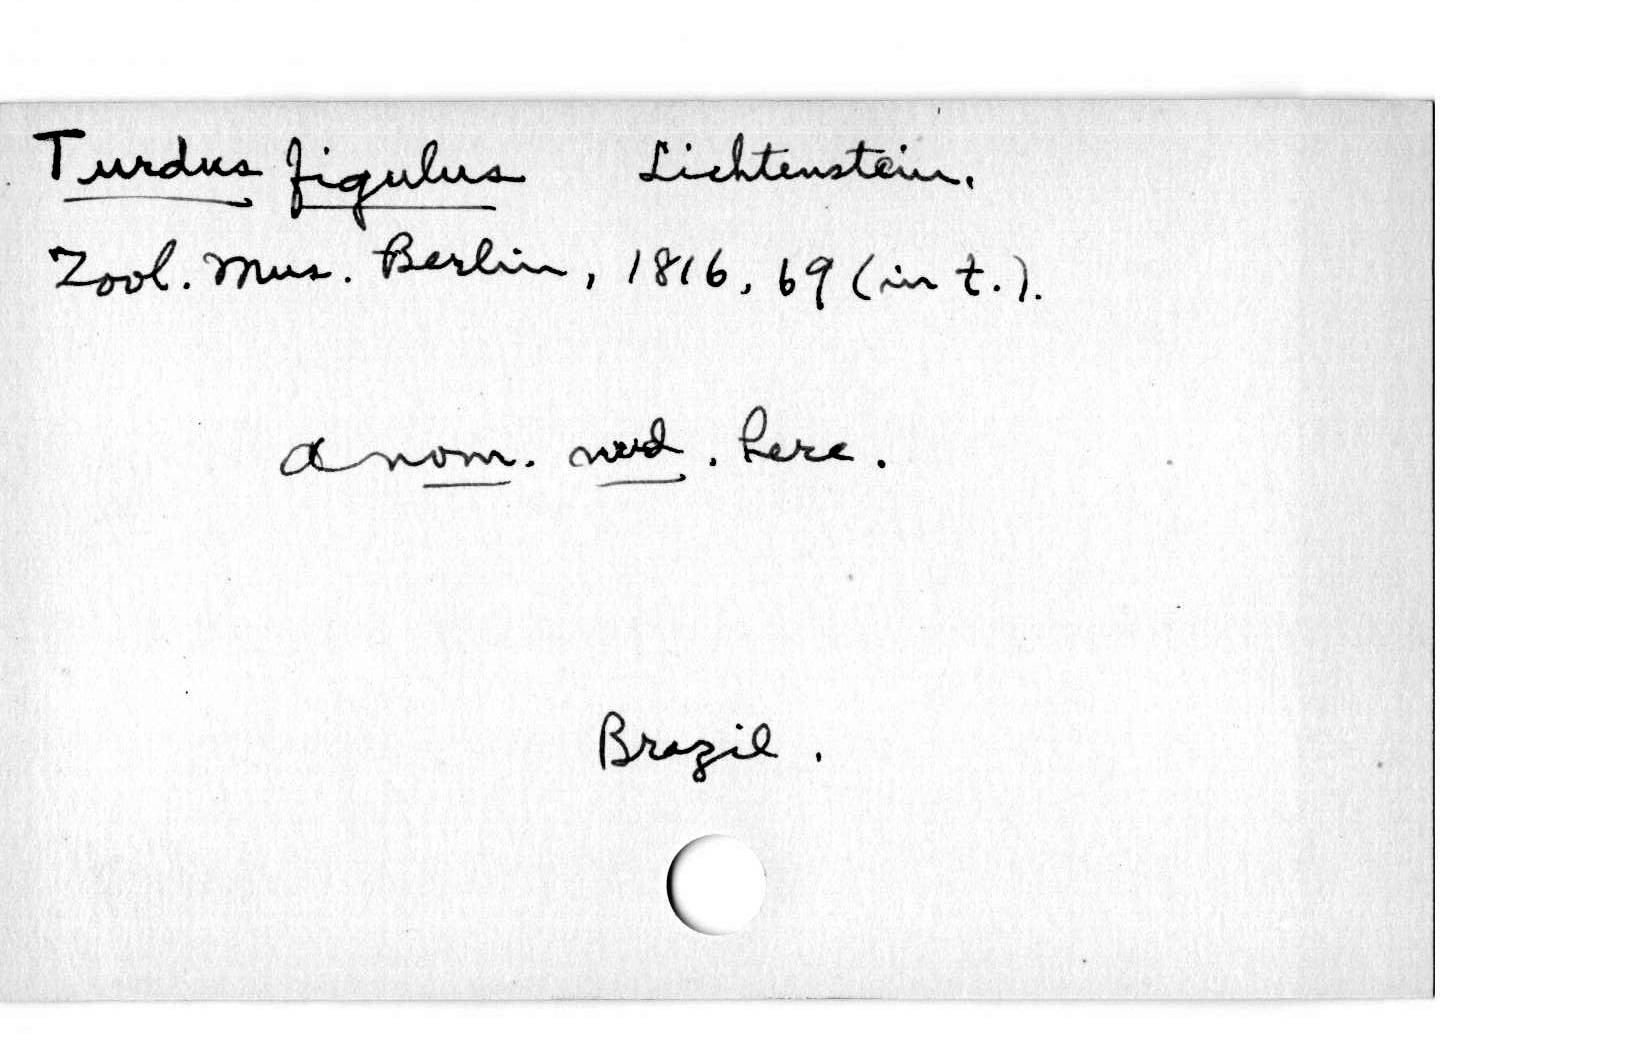 Turdus figulus Lichtenstein.
Zool. Mus. Berlin, 1816, 69 (in t.).
a nom. nud. here.
Brazil.